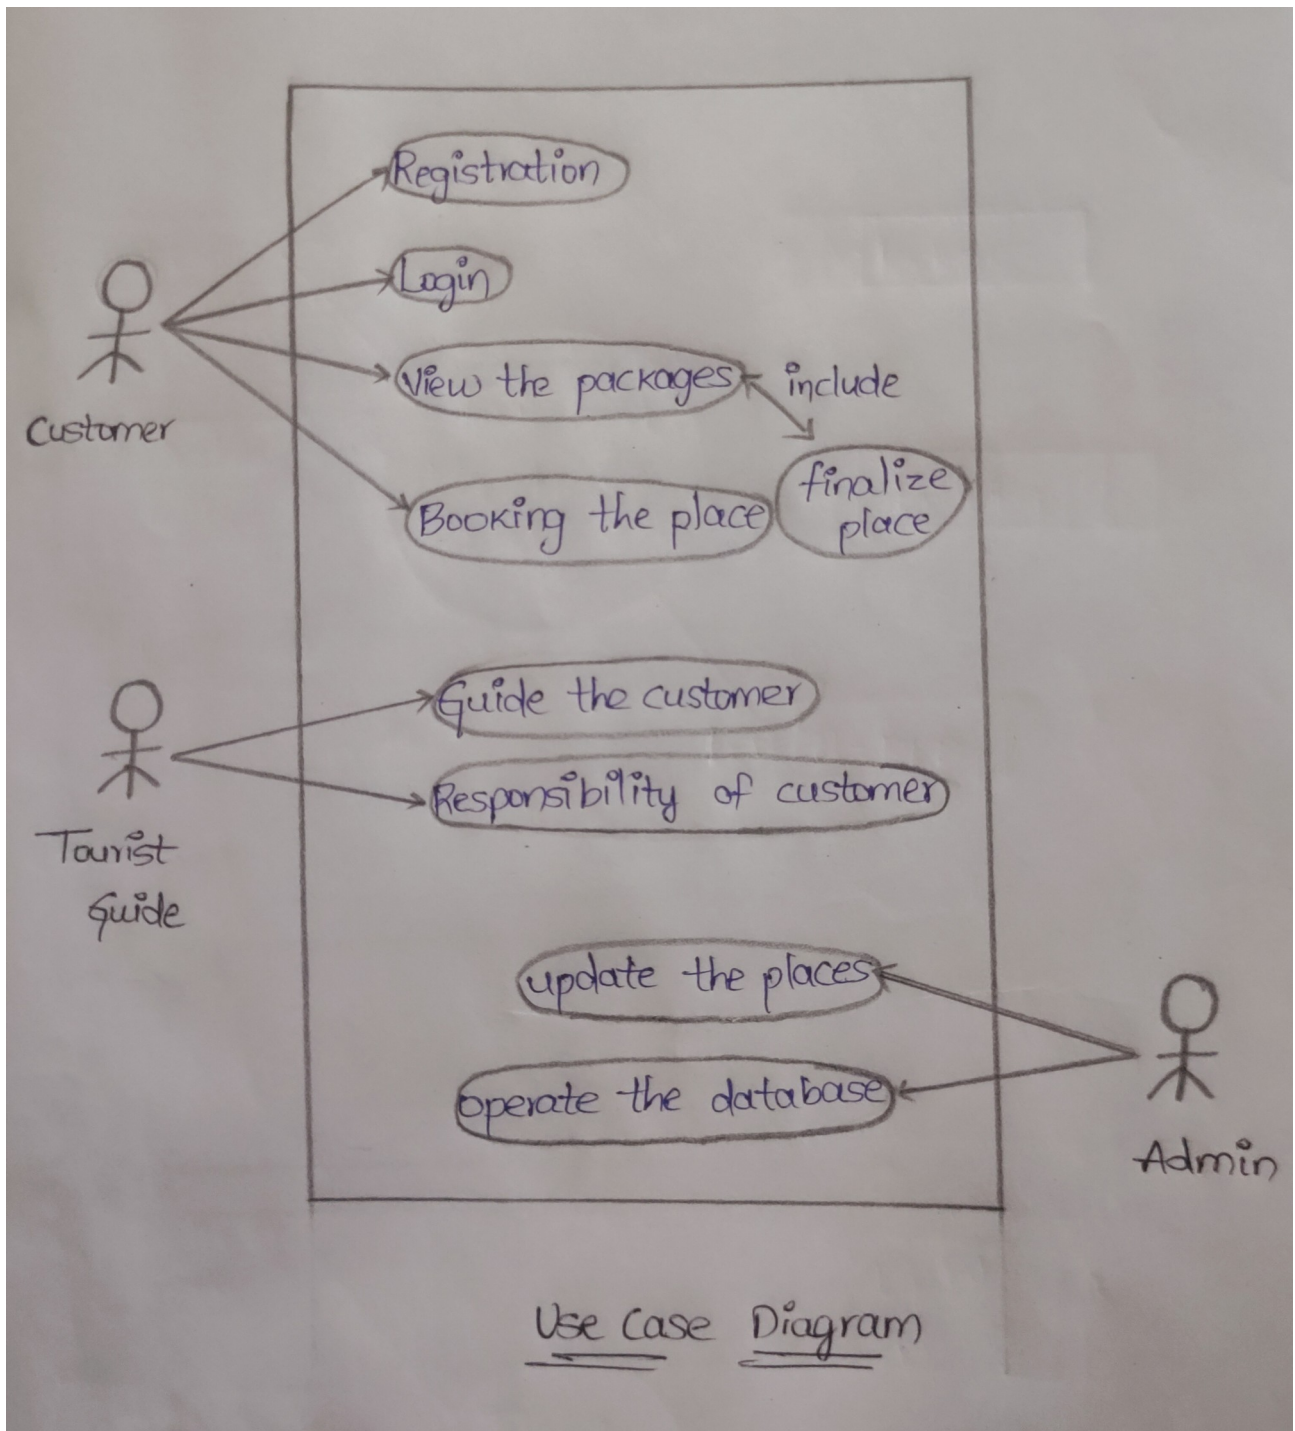 Registration
Login
View the packages
include
finalize
place
Booking the place
Customer
Guide the customer
Responsibility of customer
Tourist
Guide
update the places
operate the database
Admin
Use Case Diagram